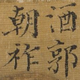 酒郭
朝祚